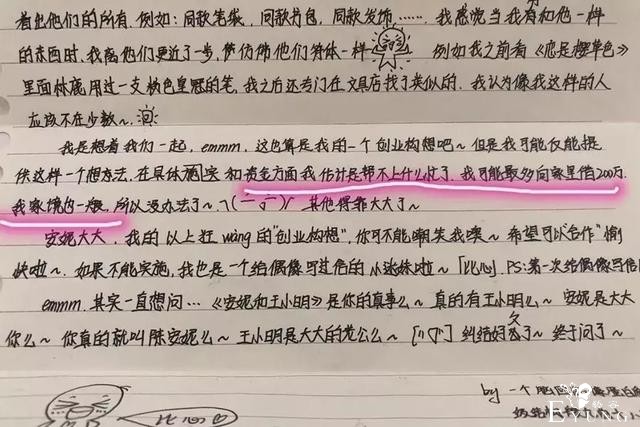 看出他们的所有.例如:同款笔袋,同款书包,同款发饰,……,我感觉当我有和他一样
的东西时,我离他们更近了一步,仿佛他们身体一样 例如我之前看《恋是樱草色》
里面林鹿用过一支杨色皇冠的笔,我之后还专门在文具店找了类似的.我认为像我这样的人
应该不在少数~.
我是想着我们一起,emmm,这也算是我的一个创业构想吧~但是我可能仅能提
供这样一个想办法,在具体 实和资金方面我估计是帮不上什么忙了.我可能最多向家里借200万.
我家境也一般,所以没办法了~.╮(一_一)╭ 其他得靠大大了~
安妮大大,我的以上狂wàng的"创业构想",你可不能嘲笑我噢~希望可以合作"愉
快啦~.如果不能实施,我也是一个给偶像写过信的小迷妹啦~「比心」.PS:第一次给偶像写信
emmm.其实一直想问…《安妮和王小明》是你的真事么~真的有王小明么~安妮是大大
你么~你真的就叫陈安妮么~王小明是大大的老公么~ 纠结好久了~终于问了~
比心
by 一个
EYUNG